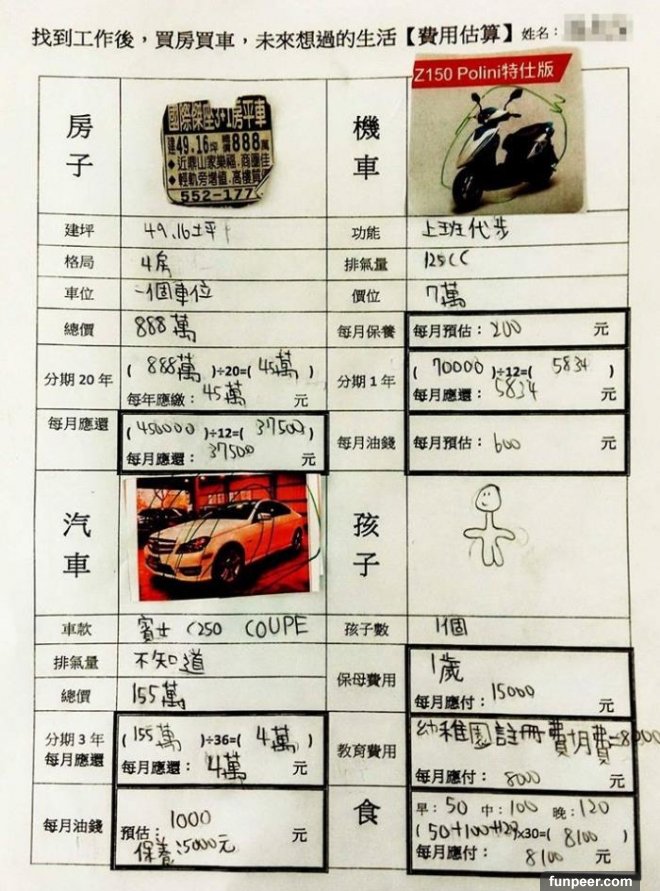 找到工作後，買房買車，未來想過的生活【費用估算】姓名：
房子
國際傑座3+1房平車
建49.16坪 售價888萬
◆近鼎山家樂福.商圈佳
◆輕軌旁增值.高樓質
552-177
機車
Z150 Polini特仕版
建坪 49.16坪
功能 上班代步
格局 4房
排氣量 125CC
車位 一個車位
價位 7萬
總價 888萬
每月保養 每月預估：200 元
分期 20 年 ( 888萬 )÷20=( 45萬 )
每年應繳：45萬 元
分期 1 年 ( 70000 )÷12=( 5834 )
每月應還：5834 元
每月應還 (450000)÷12=( 37500 )
每月應還：37500 元
每月油錢 每月預估：600 元
汽車
孩子
車款 賓士 C250 COUPE
孩子數 1個
排氣量 不知道
總價 155萬
保母費用 1歲
每月應付：15000 元
分期 3 年 每月應還 ( 155萬 )÷36=( 4萬 )
每月應還：4萬 元
教育費用 幼稚園註冊費+月費=8000
每月應付：8000 元
每月油錢 1000
預估： 元
保養：5000元
食
早：50 中：100 晚：120
(50+100+120)x30=( 8100 )
每月應付：8100 元
funpeer.com